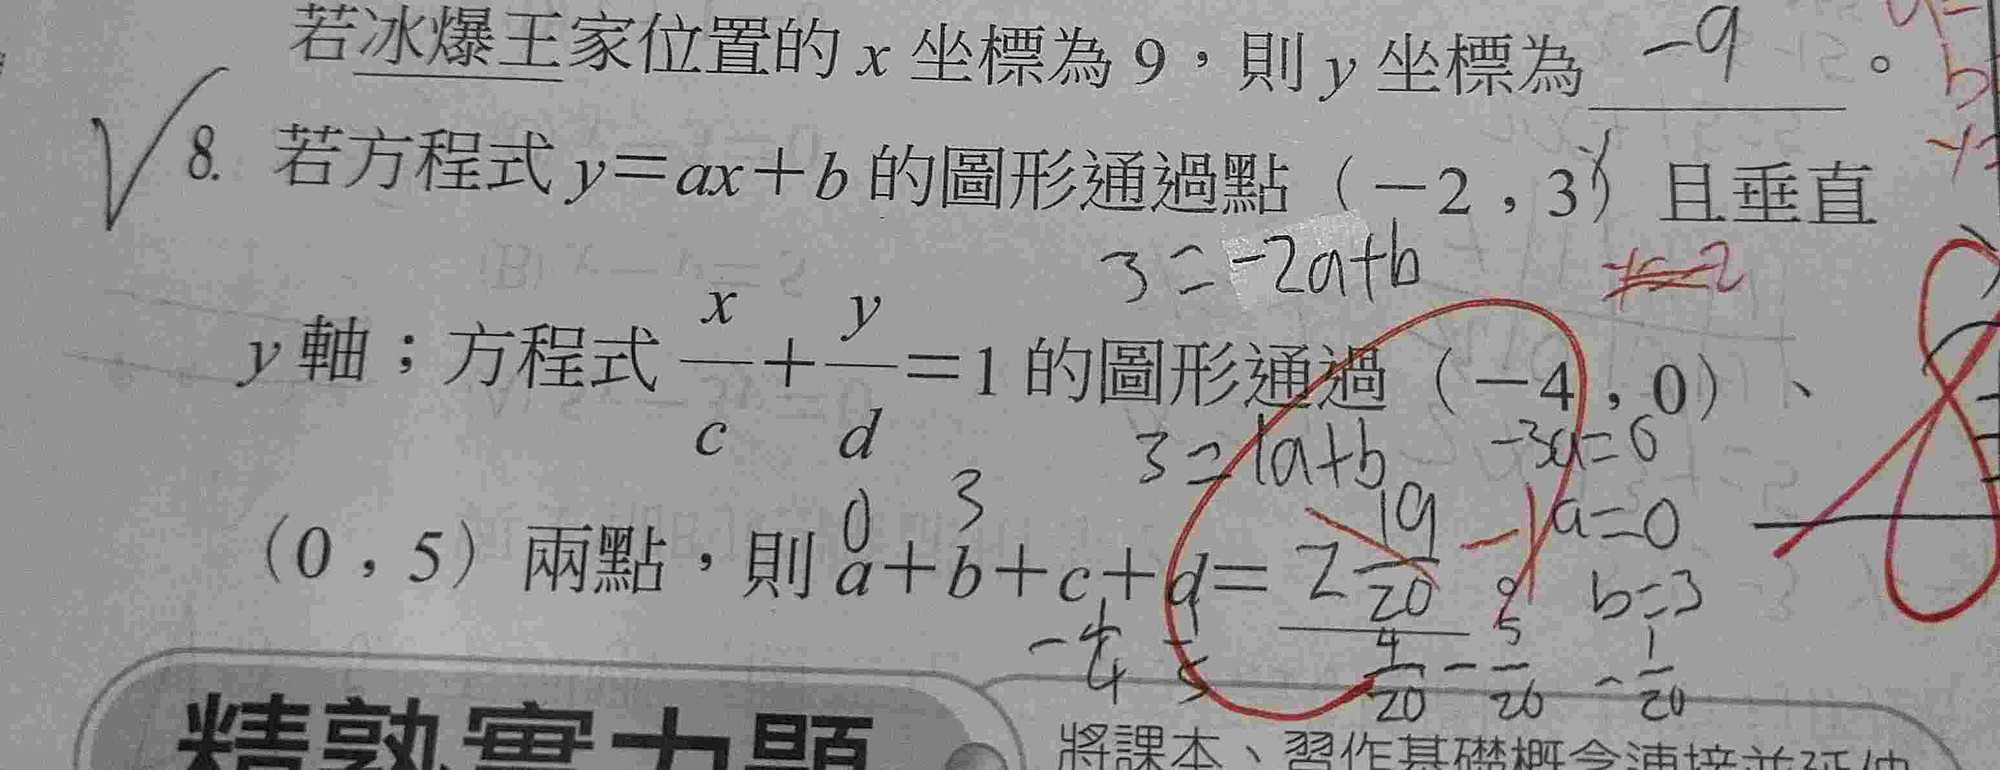 若冰爆王家位置的 x 坐標為 9，則 y 坐標為 -9 。
8. 若方程式 y＝ax＋b 的圖形通過點（－2 , 3）且垂直
3=-2a+b
y 軸；方程式 x/c＋y/d＝1 的圖形通過（－4 , 0）、
3=1a+b -3a=0
0 3 a=0
（0 , 5）兩點，則 a＋b＋c＋d＝ 2 19/20 b=3
-1/4 1/5 4/20 - 5/20 -1/20
精熟實力題
將課本、習作基礎概念連接並延伸